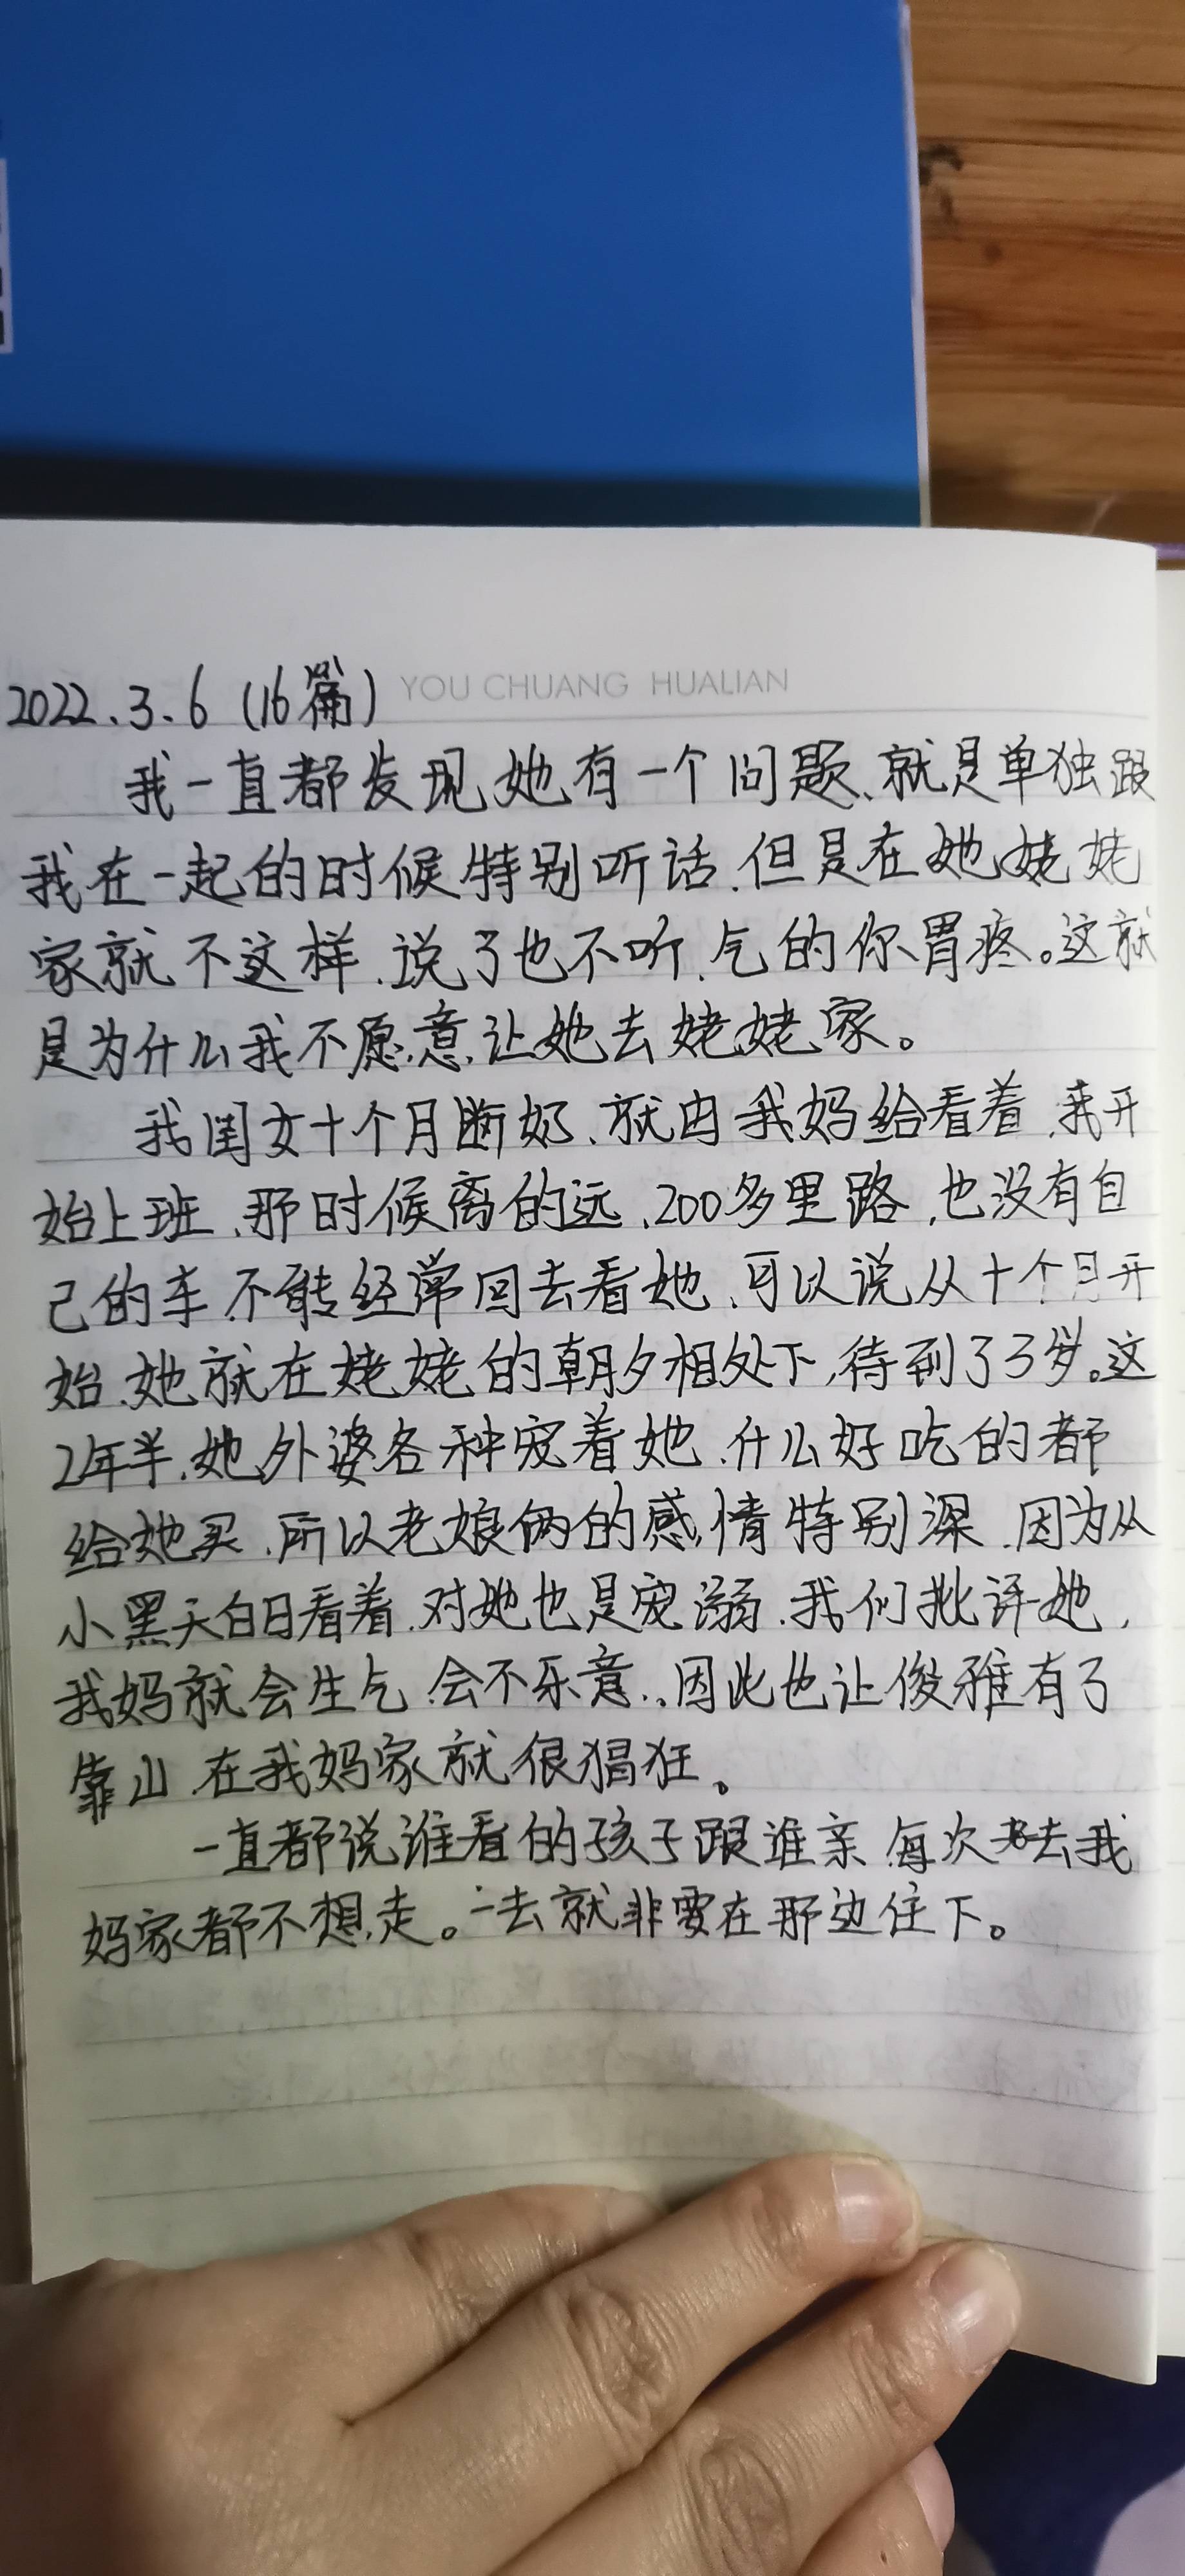 YOU CHUANG HUALIAN
2022.3.6 (16篇)
我一直都发现她有一个问题、就是单独跟
我在一起的时候特别听话、但是在她姥姥
家就不这样、说了也不听、气的你胃疼。这就
是为什么我不愿意让她去姥姥家。
我闺女十个月断奶、就由我妈给看着、我开
始上班、那时候离的远、200多里路、也没有自
己的车、不能经常回去看她、可以说从十个月开
始、她就在姥姥的朝夕相处下,待到了3岁。这
2年半、她外婆各种宠着她、什么好吃的都
给她买、所以老娘俩的感情特别深、因为从
小黑天白日看着、对她也是宠溺、我们批评她,
我妈就会生气、会不乐意、。因此也让俊雅有了
靠山、在我妈家就很猖狂。
一直都说谁看的孩子跟谁亲、每次去我
妈家都不想走。一去就非要在那边住下。